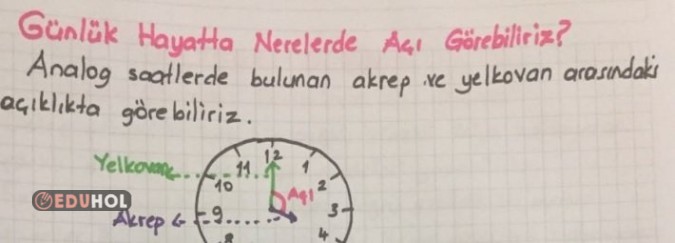 Günlük Hayatta Nerelerde Açı Görebiliriz?
Analog saatlerde bulunan akrep ve yelkovan arasındaki
açıklıkta görebiliriz.
12
11 1
Yelkovan
10 2
Açı
EDUHOL
Akrep 9 3
8 4